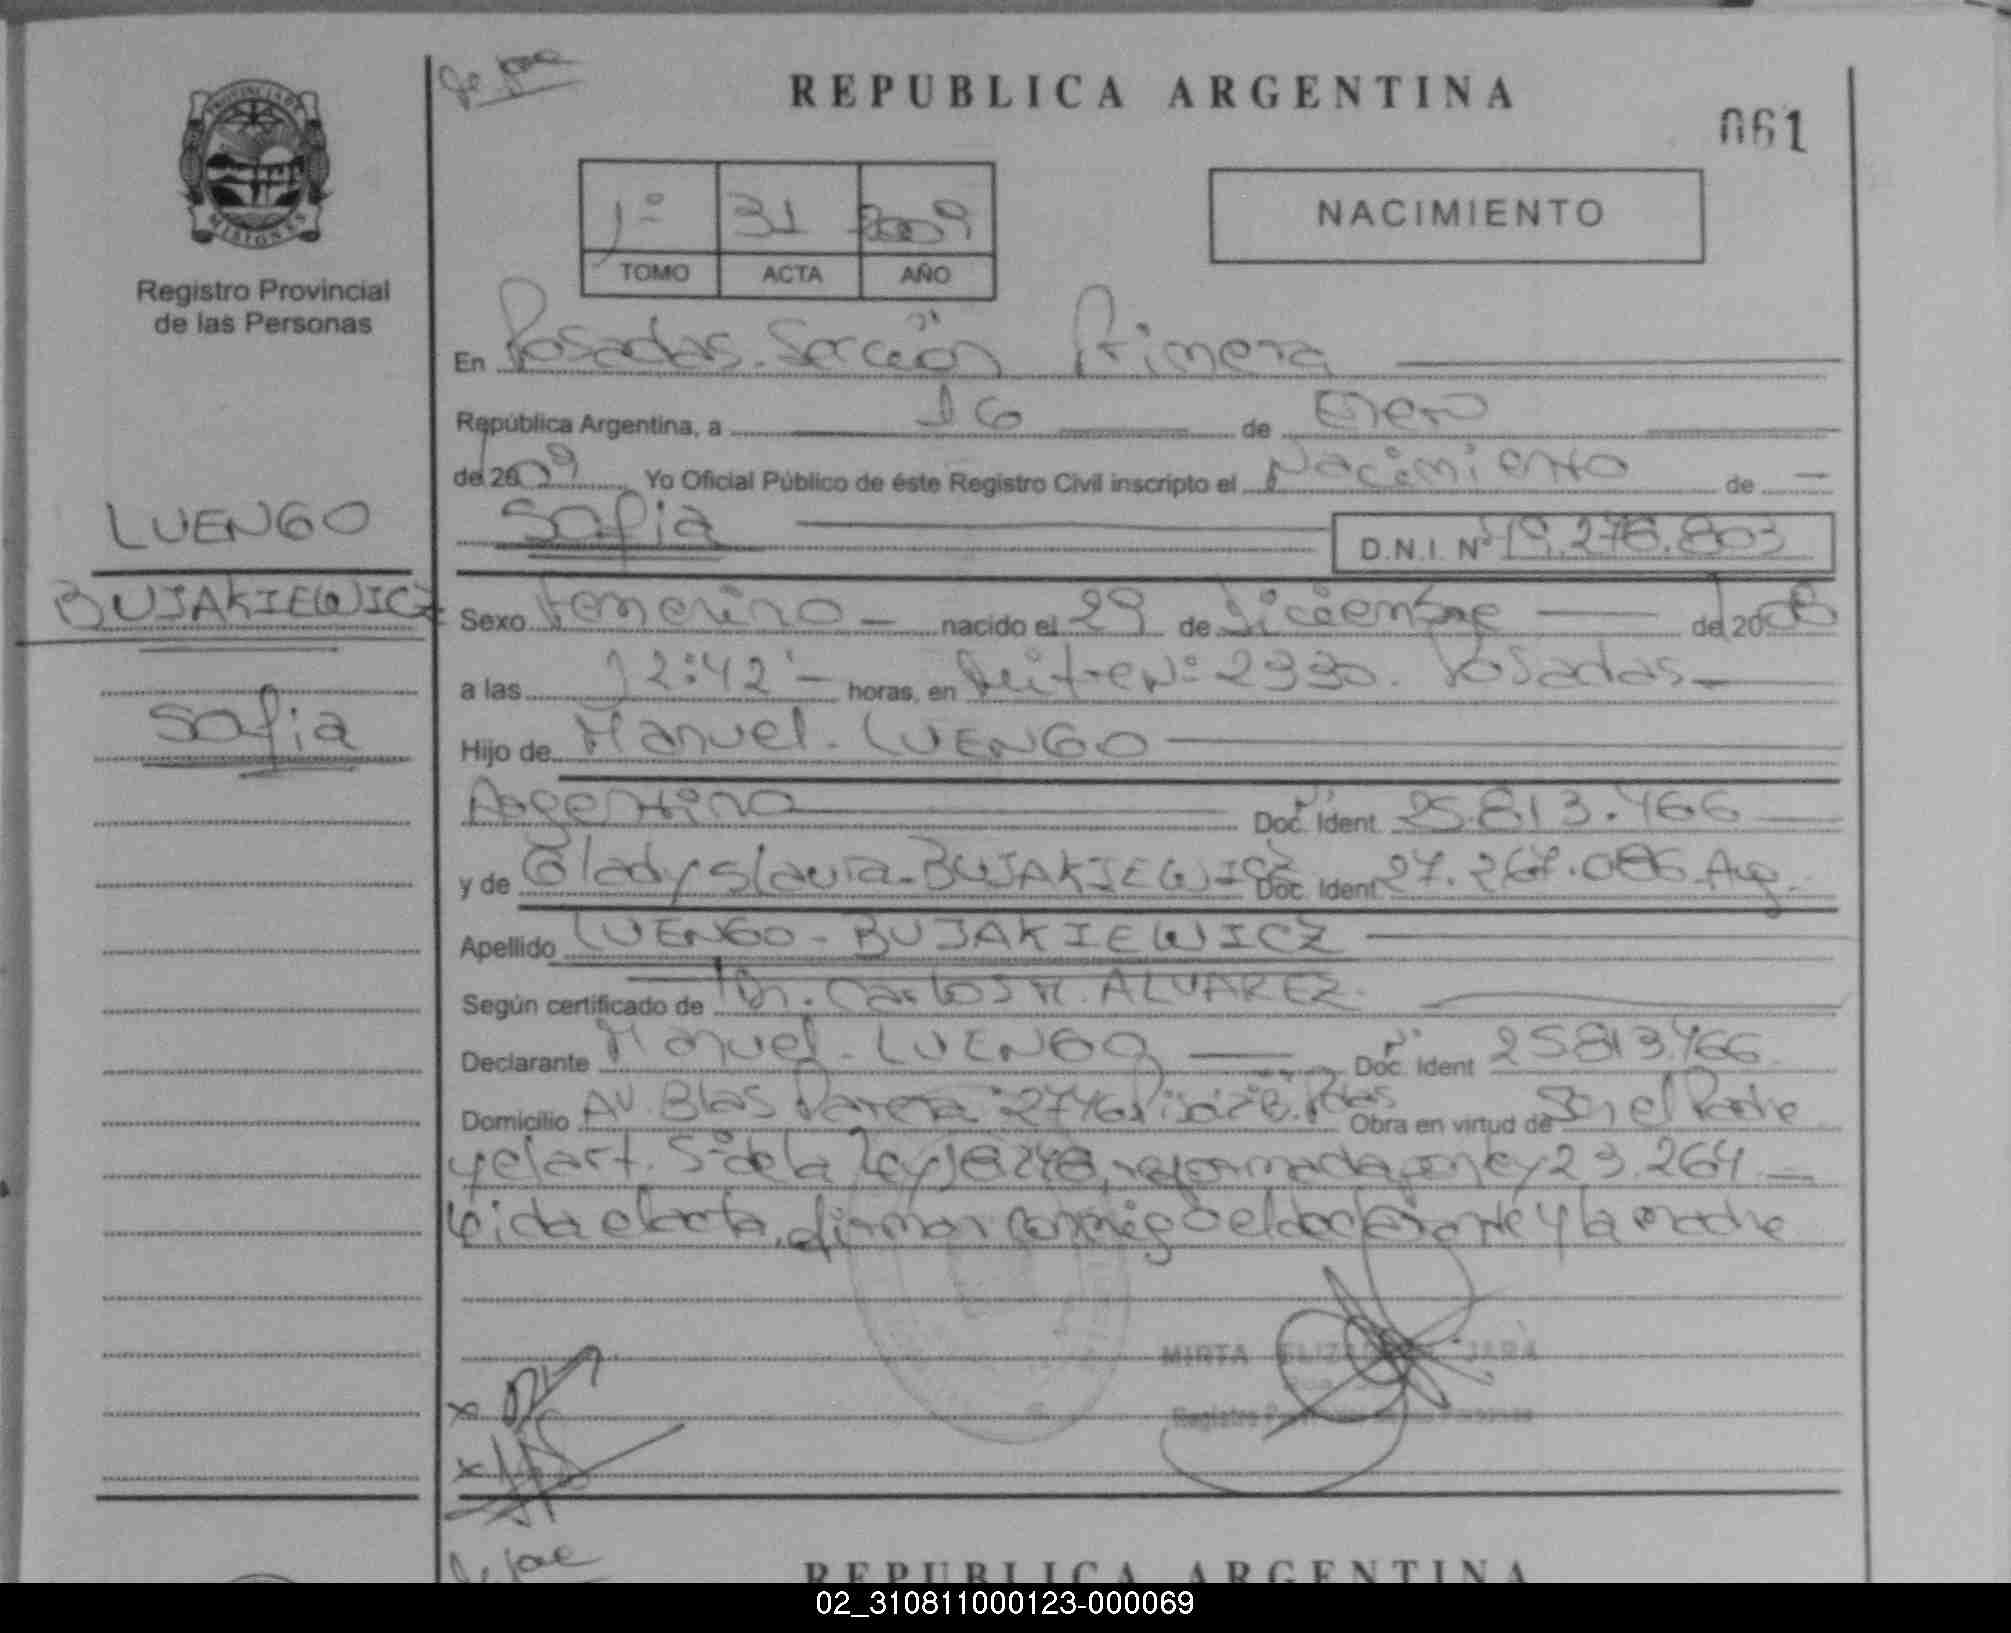 de jore
REPUBLICA ARGENTINA
061
PROVINCIA DE
MISIONES
Registro Provincial
de las Personas
1º 31 2009
TOMO ACTA AÑO
NACIMIENTO
En Posadas. Sección Primera
República Argentina, a 16 de Enero
del 2009 Yo Oficial Público de éste Registro Civil inscripto el Nacimiento de
Sofia D.N.I. Nº 19.276.803
LUENGO
BUJAKIEWICZ
Sofia
Sexo Femenino nacido el 29 de Diciembre del 2008
a las 12:42 horas, en Mitre Nº 2330. Posadas
Hijo de Manuel. LUENGO
Argentino Doc. Ident. Nº 25.813.466
y de Gladys Slavia. BUJAKIEWICZ Doc. Ident 27.267.086 Arg.
Apellido LUENGO - BUJAKIEWICZ
Según certificado de Dr. Carlos M. ALVAREZ.
Declarante Manuel. LUENGO Doc. Ident Nº 25813.466
Domicilio Av. Blas Parera 2746 Pdas Obra en virtud de Ser el Padre
y el art. 5º de la Ley 18248, reformada por ley 23.264
Leida el acta, firman conmigo el declarante y la madre
MIRTA JARA
Registro
REPUBLICA ARGENTINA
02_310811000123-000069